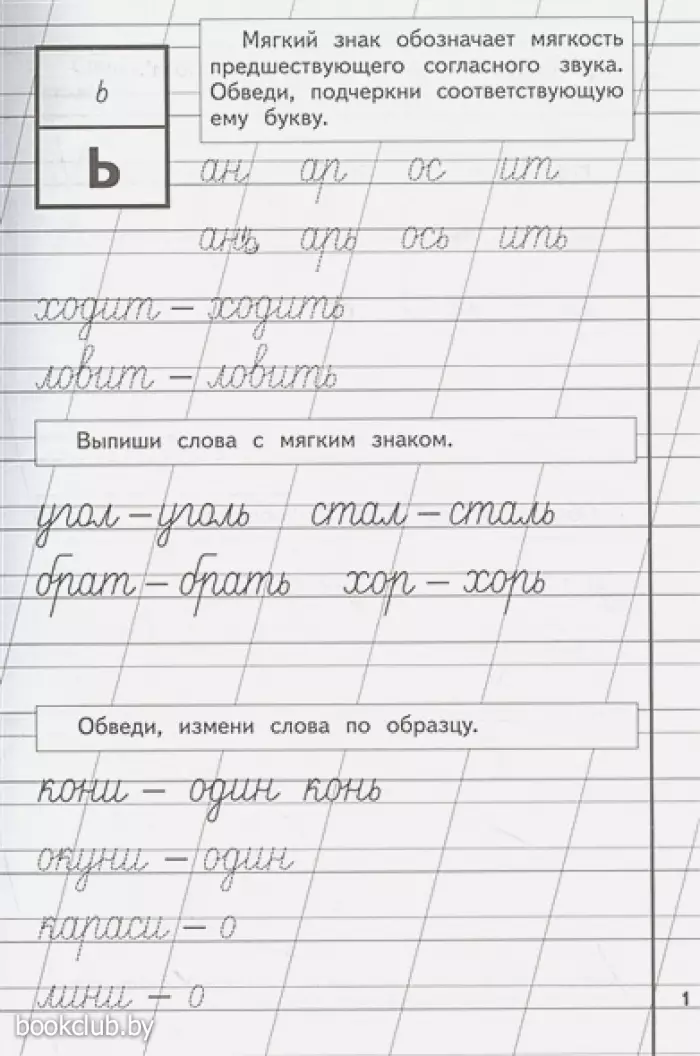 Мягкий знак обозначает мягкость
предшествующего согласного звука.
Обведи, подчеркни соответствующую
ему букву.
ь
Ь
ан ар ос ит
ань арь ось ить
ходит – ходить
ловит – ловить
Выпиши слова с мягким знаком.
угол – уголь стал – сталь
брат – брать хор – хорь
Обведи, измени слова по образцу.
кони – один конь
окуни – один
караси – о
лини – о
1
bookclub.by